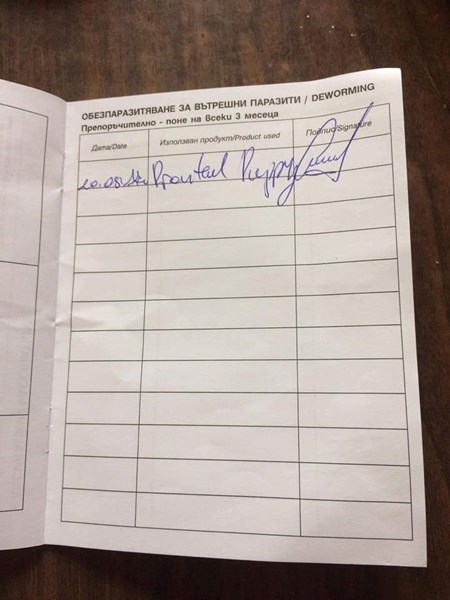 ОБЕЗПАРАЗИТЯВАНЕ ЗА ВЪТРЕШНИ ПАРАЗИТИ / DEWORMING
Препоръчително - поне на всеки 3 месеца
Дата/Date Използван продукт/Product used Подпис/Signature
Puppy